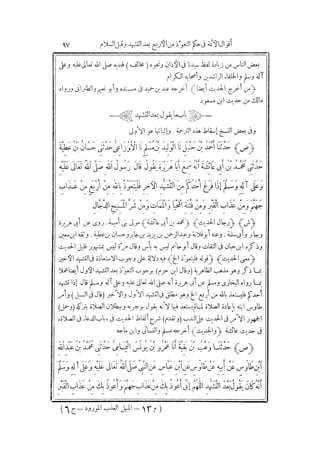 أقوال الأئمة فى حكم التعوذ من الأربع بعد التشهد وقبل السلام ٩٧
بعض الناس من زيادة لفظ سيدنا فى الأذان ونحوه (مخالف) لهديه صلى الله تعالى عليه وعلى
آله وسلم والخلفاء الراشدين وأصحابه الكرام
(من أخرج الحديث أيضا) أخرجه عبد بن حميد فى مسنده وأبو نعيم والطبرانى ورواه
مالك من حديث ابن مسعود
باب ما يقول بعد التشهد
وفى بعض النسخ إسقاط هذه الترجمة. وإثباتها هو الأولى
(ص) حدثنا أحمد بن حنبل نا الوليد بن مسلم نا الأوزاعى حدثنى حسان بن عطية
حدثنى محمد بن أبى عائشة أنه سمع أبا هريرة يقول قال رسول الله صلى الله تعالى عليه
وعلى آله وسلم إذا فرغ أحدكم من التشهد الآخر فليتعوذ بالله من أربع من عذاب
جهنم ومن عذاب القبر ومن فتنة المحيا والممات ومن شر المسيح الدجال
(ش) (رجال الحديث) (محمد بن أبى عائشة) مولى بنى أمية. روى عن أبى هريرة
وجابر وأبى سلمة. وعنه أبو قلابة وعبد الرحمن بن يزيد بن جابر وحسان بن عطية. وثقه ابن معين
وذكره ابن حبان فى الثقات وقال أبو حاتم ليس به بأس وقال مرة ليس بمشهور قليل الحديث
(معنى الحديث) (قوله فليتعوذ الخ) فيه دلالة على وجوب الاستعاذة فى التشهد الأخير
بما ذكر وهو مذهب الظاهرية (وقال ابن حزم) بوجوب التعوذ بعد التشهد الأول أيضا عملا
بما رواه البخارى ومسلم عن أبى هريرة أنه صلى الله تعالى عليه وعلى آله وسلم قال إذا تشهد
أحدكم فليستعذ بالله من أربع الخ وهو مطلق فى التشهد الأول والأخير (قال فى السبل) وأمر
طاوس ابنه بإعادة الصلاة لما لم يستعذ فيها لأنه يقول بوجوبه وبطلان الصلاة بتركه (وحمل)
الجمهور الأمر فى الحديث على الندب (وتقدم) شرح ألفاظ الحديث فى باب الدعاء فى الصلاة،
فى حديث عائشة (والحديث) أخرجه مسلم والنسائى وابن ماجه
(ص) حدثنا وهب بن بقية أنا عمر بن يونس اليمامى حدثنى محمد بن عبد الله
ابن طاوس عن أبيه عن طاوس عن ابن عباس عن النبى صلى الله تعالى عليه وعلى آله وسلم
أنه كان يقول بعد التشهد اللهم إنى أعوذ بك من عذاب جهنم وأعوذ بك من عذاب القبر
(م ١٣ - المنهل العذب المورود - ج ٦)